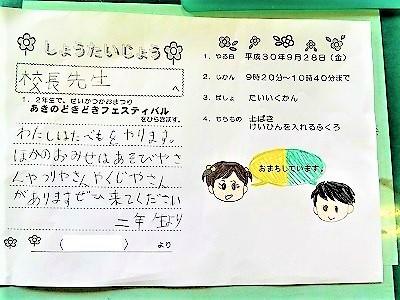 しょうたいじょう
校長先生 へ
1、2年生で、せいかつかおまつり
あきのどきどきフェスティバル
をひらきます。
わたしはたべものをやります。
ほかのおみせはあそびやさ
んやつりやさんやくじやさん
がありますぜひ来てください
二年 生より
( ) より
1. やる日 平成30年9月28日(金)
2. じかん 9時20分~10時40分まで
3. ばしょ たいいくかん
4. もちもの 上ばき
けいひんを入れるふくろ
おまちしています。